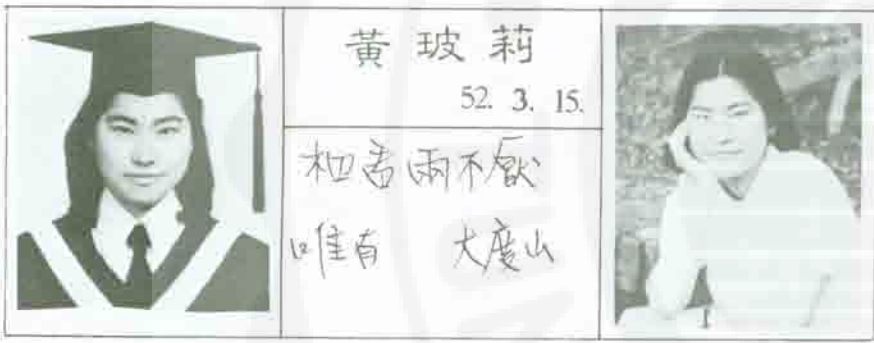 黃玻莉
52. 3. 15.
相看兩不厭
唯有 大度山